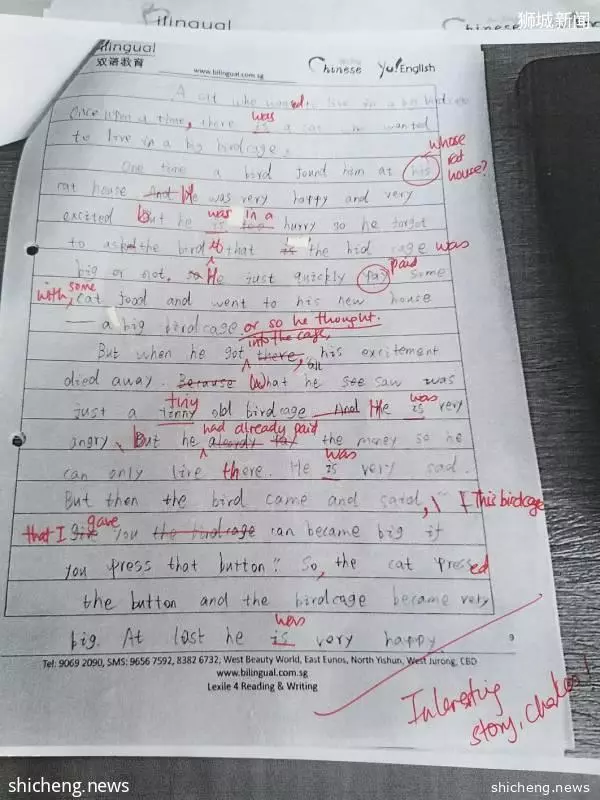 狮城新闻
Bilingual
Bilingual
双语教育
www.bilingual.com.sg
Chinese Yu! English
A cat who wanted to live in a big birdcage
Once upon a time, there was is a cat he wanted
to live in a big birdcage.
One time a bird found him at his whose cat house?
cat house And He was very happy and very
excited but he was is in a too hurry so he forgot
to asked the bird if that is the bid cage was
big or not. so He just quickly pay paid some
with some cat food and went to his new house
a big birdcage. or so he thought.
into the cage,
But when he got there, his excitement
died away. Because What he see saw was all
just a tinny tiny old birdcage And He is was very
angry, But he had already paid aleardy pay the money so he
can only live there. He was is very sad.
But then the bird came and said, " This birdcage
that I gave give you the birdcage can became big if
you press that button." So, the cat pressed
the button and the birdcage became very
big. At last he was is very happy
9
Tel: 9069 2090, SMS: 9656 7592, 8382 6732; West Beauty World, East Eunos, North Yishun, West Jurong, CBD
www.bilingual.com.sg
Lexile 4 Reading & Writing
Interesting
story,
shicheng.news
shicheng.news